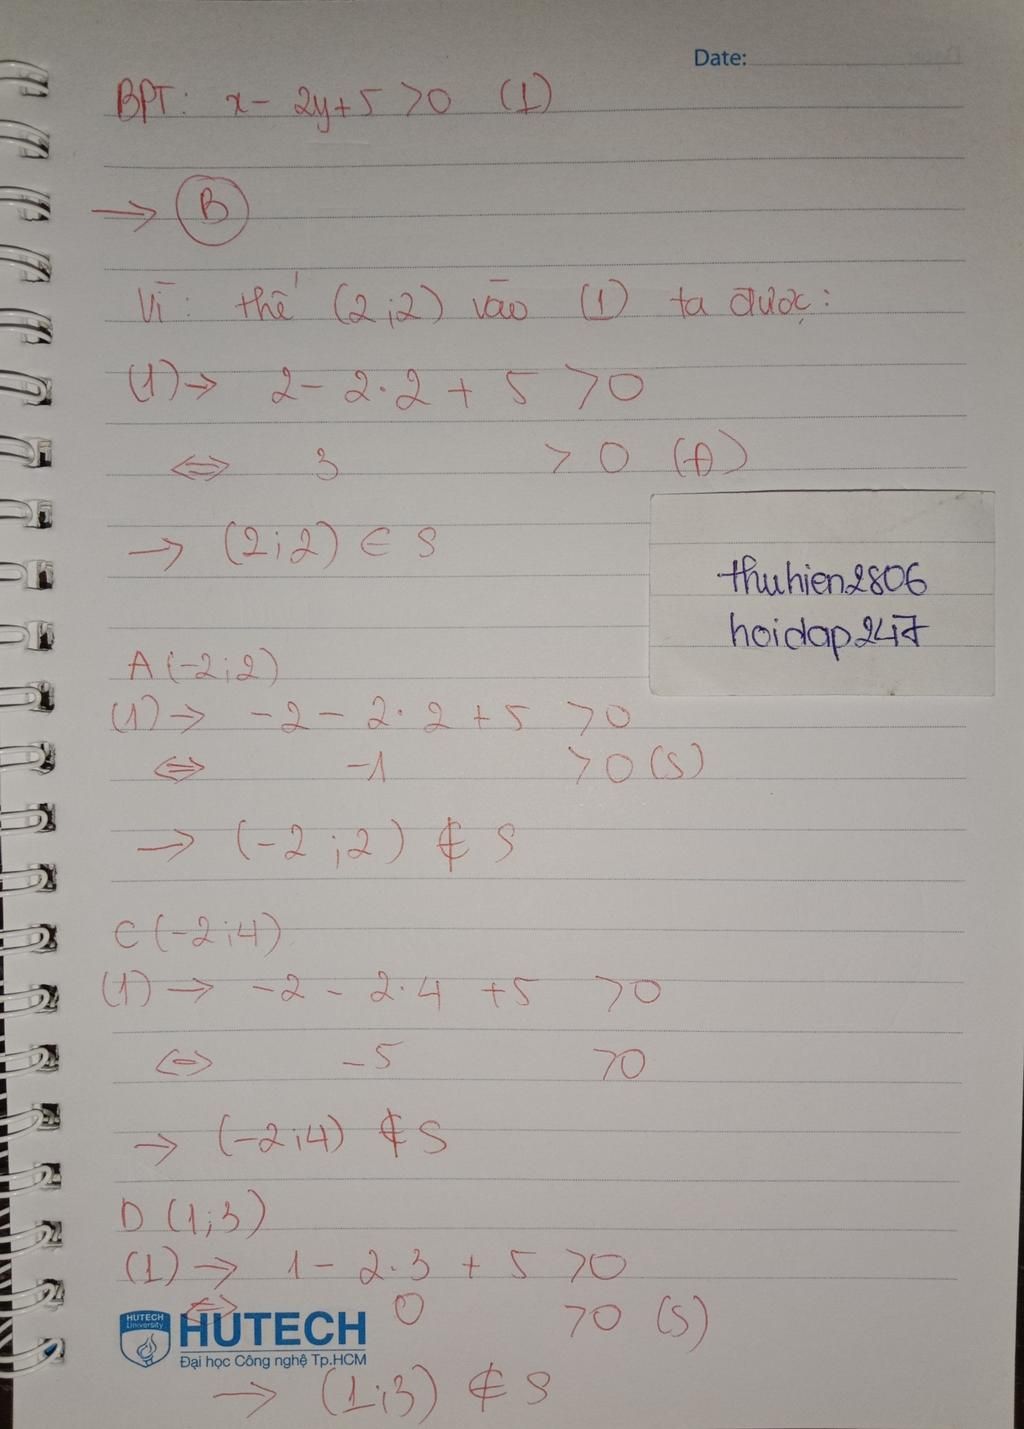 Date:
BPT: x - 2y + 5 > 0 (1)
→ B
Vì: thế (2;2) vào (1) ta được:
(1) → 2 - 2.2 + 5 > 0
⇔ 3 > 0 (Đ)
→ (2;2) ∈ S
thuhien2806
hoidap247
A (-2;2)
(1) → -2 - 2.2 + 5 > 0
⇔ -1 > 0 (S)
→ (-2;2) ∉ S
C (-2;4)
(1) → -2 - 2.4 + 5 > 0
⇔ -5 > 0
→ (-2;4) ∉ S
D (1;3)
(1) → 1 - 2.3 + 5 > 0
⇔ 0 > 0 (S)
HUTECH
University
HUTECH
Đại học Công nghệ Tp.HCM
→ (1;3) ∉ S